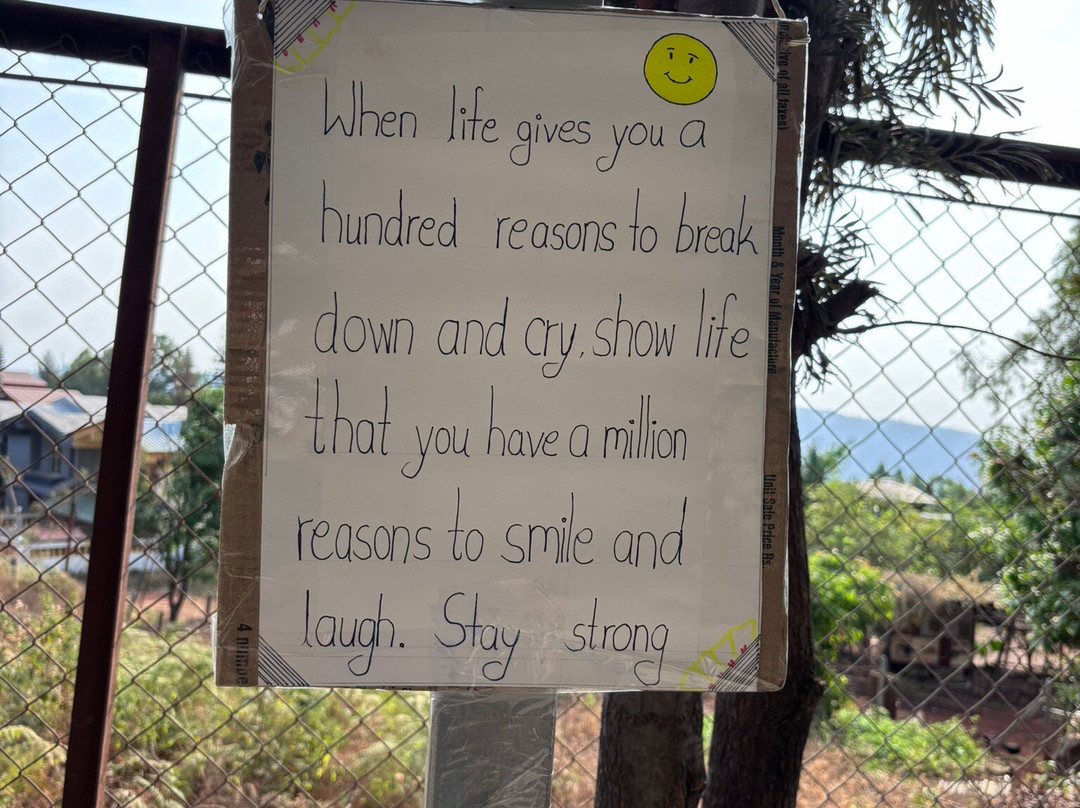 When life gives you a
hundred reasons to break
down and cry, show life
that you have a million
reasons to smile and
laugh. Stay strong
of all taxes)
Month & Year of Manufacture
Unit Sale Price Rs.